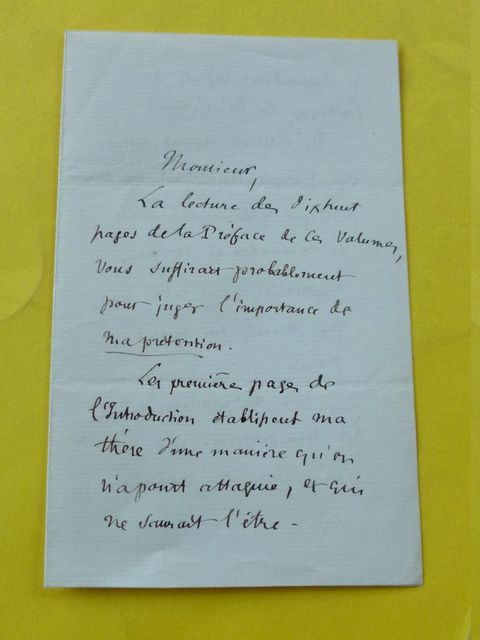 Monsieur,
La lecture des dixhuit
pages de la Préface de ces Volumes,
vous suffirait probablement
pour juger l'importance de
ma prétention.
Les premières pages de
l'Introduction établissent ma
thèse d'une manière qu'on
n'a point attaquée, et qui
ne saurait l'être -